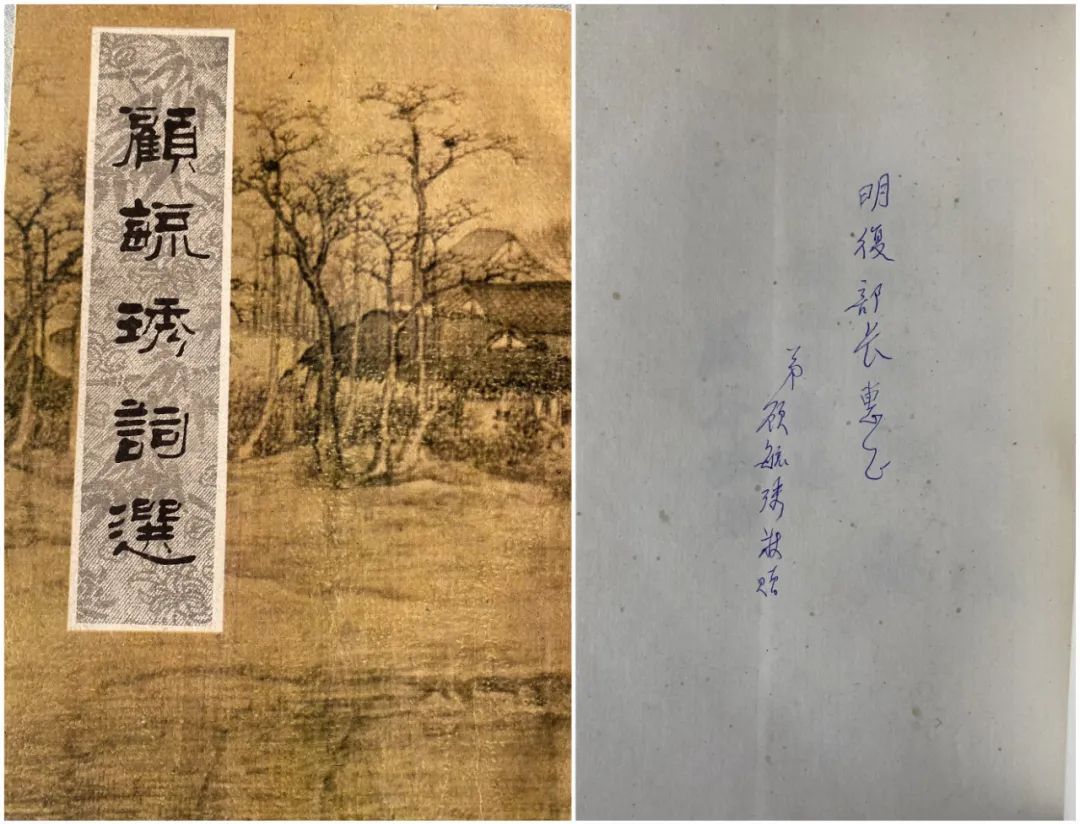 顧毓琇詞選
明復部长惠正
弟顾毓琇敬贈